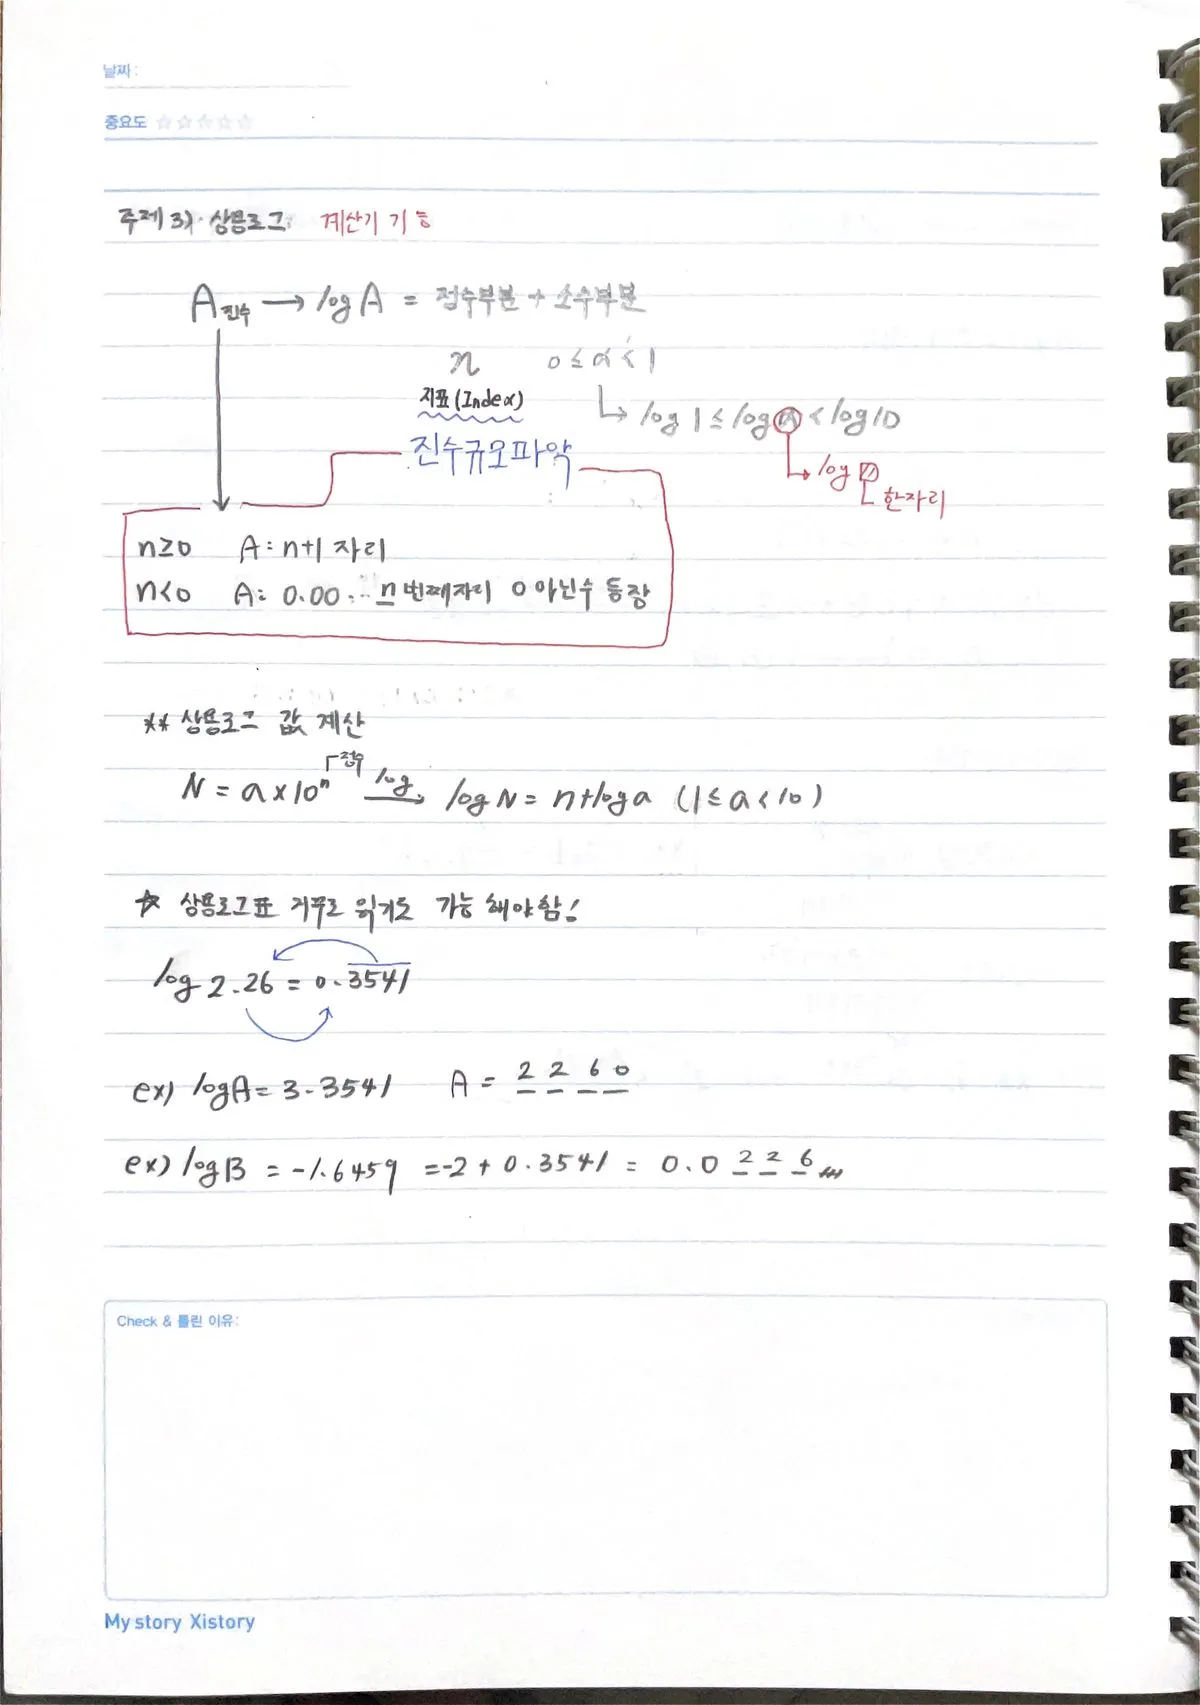 날짜:
중요도 ☆☆☆☆☆
주제 3). 상용로그: 계산기 기능
A진수 → log A = 정수부분 + 소수부분
n 0 ≤ α < 1
지표 (Index)
↳ log 1 ≤ log A < log 10
진수규모파악
↳ log
한자리
n≥0 A: n+1 자리
n<0 A: 0.00… n번째자리 0 아닌수 등장
** 상용로그 값 계산
정수
N = a×10ⁿ log→ log N = n+log a (1≤a<10)
☆ 상용로그표 거꾸로 읽기도 가능 해야함!
log 2.26 = 0.3541
ex) logA= 3.3541 A = 2 2 6 0
ex) logB = -1.6459 = -2 + 0.3541 = 0.0 2 2 6
Check & 틀린 이유:
My story Xistory